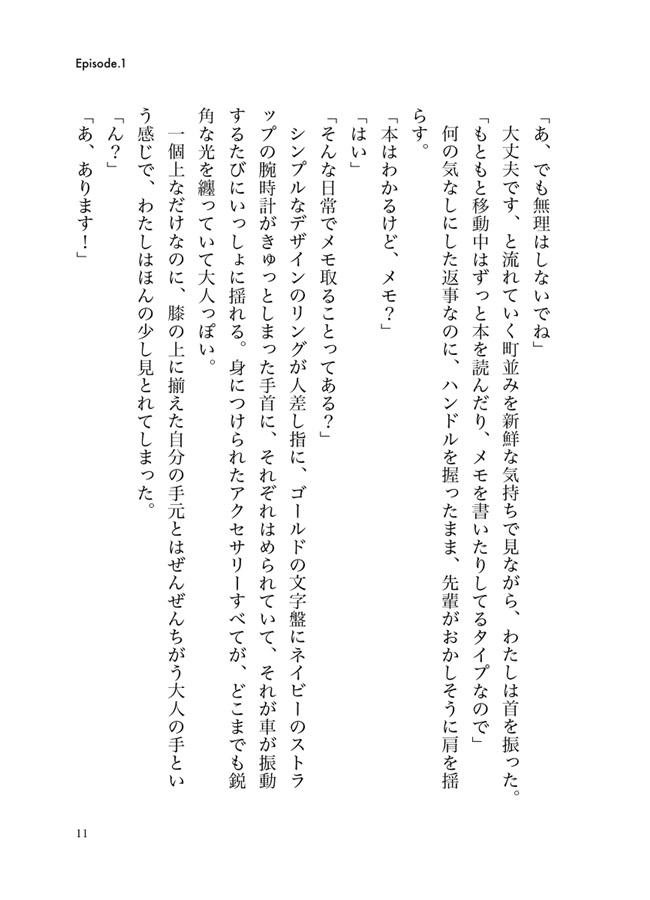 Episode.1
「あ、でも無理はしないでね」
大丈夫です、と流れていく町並みを新鮮な気持ちで見ながら、わたしは首を振った。
「もともと移動中はずっと本を読んだり、メモを書いたりしてるタイプなので」
何の気なしにした返事なのに、ハンドルを握ったまま、先輩がおかしそうに肩を揺
らす。
「本はわかるけど、メモ？」
「はい」
「そんな日常でメモ取ることってある？」
シンプルなデザインのリングが人差し指に、ゴールドの文字盤にネイビーのストラ
ップの腕時計がきゅっとしまった手首に、それぞれはめられていて、それが車が振動
するたびにいっしょに揺れる。身につけられたアクセサリーすべてが、どこまでも鋭
角な光を纏っていて大人っぽい。
一個上なだけなのに、膝の上に揃えた自分の手元とはぜんぜんちがう大人の手とい
う感じで、わたしはほんの少し見とれてしまった。
「ん？」
「あ、あります！」
11